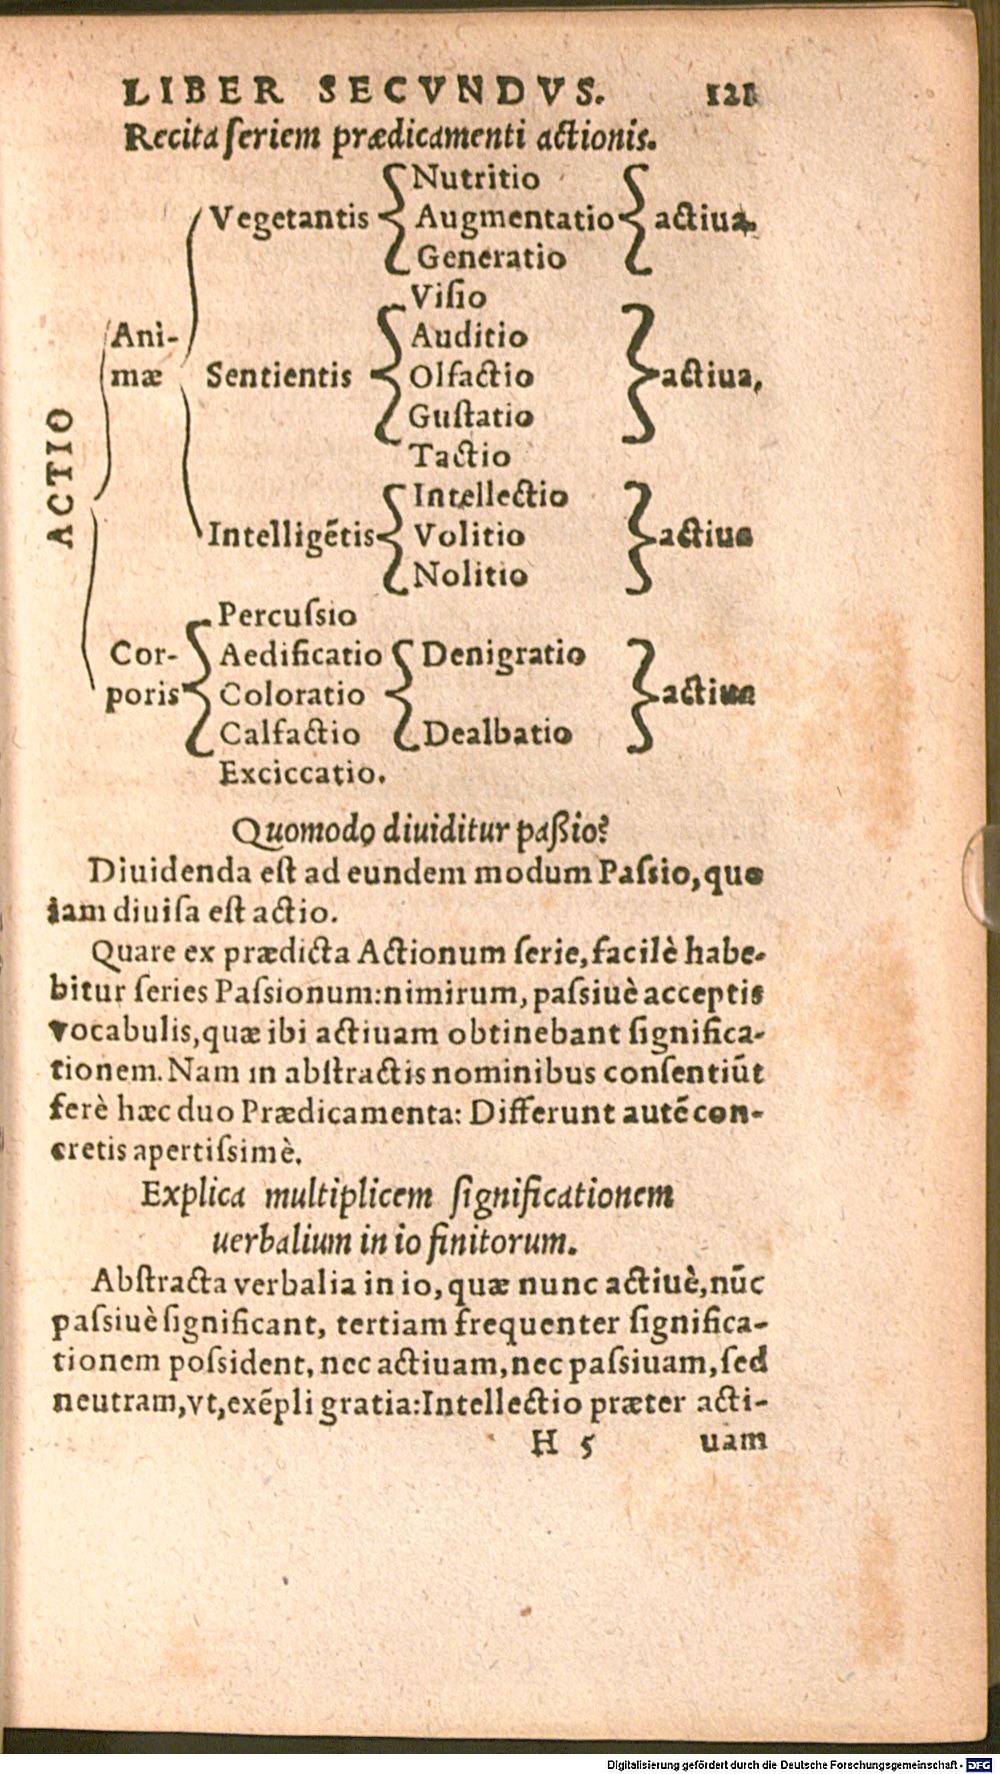 LIBER SECVNDVS. 121
Recita ſeriem prædicamenti actionis.
ACTIO
Nutritio
Vegetantis Augmentatio actiua.
Generatio
Viſio
Ani- Auditio
mæ Sentientis Olfactio actiua,
Guſtatio
Tactio
Intellectio
Intelligẽtis Volitio actiue
Nolitio
Percuſsio
Cor- Aedificatio Denigratio
poris Coloratio actiue
Calfactio Dealbatio
Exciccatio.
Quomodo diuiditur paßio?
Diuidenda eſt ad eundem modum Paſsio, quo
iam diuiſa eſt actio.
Quare ex prædicta Actionum ſerie, facilè habe-
bitur ſeries Paſsionum: nimirum, paſsiuè acceptis
vocabulis, quæ ibi actiuam obtinebant ſignifica-
tionem. Nam in abſtractis nominibus conſentiũt
ferè hæc duo Prædicamenta: Differunt autẽ con-
cretis apertiſsimè.
Explica multiplicem ſignificationem
uerbalium in io finitorum.
Abſtracta verbalia in io, quæ nunc actiuè, nũc
paſsiuè ſignificant, tertiam frequenter ſignifica-
tionem poſsident, nec actiuam, nec paſsiuam, ſed
neutram, vt, exẽpli gratia: Intellectio præter acti-
H 5 uam
Digitalisierung gefördert durch die Deutsche Forschungsgemeinschaft - DFG